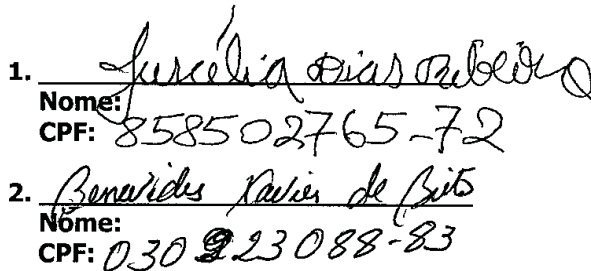 1. Jucélia Dias Ribeiro
Nome:
CPF: 858502765-72
2. Benevides Xavier de Brito
Nome:
CPF: 030 923 088-83